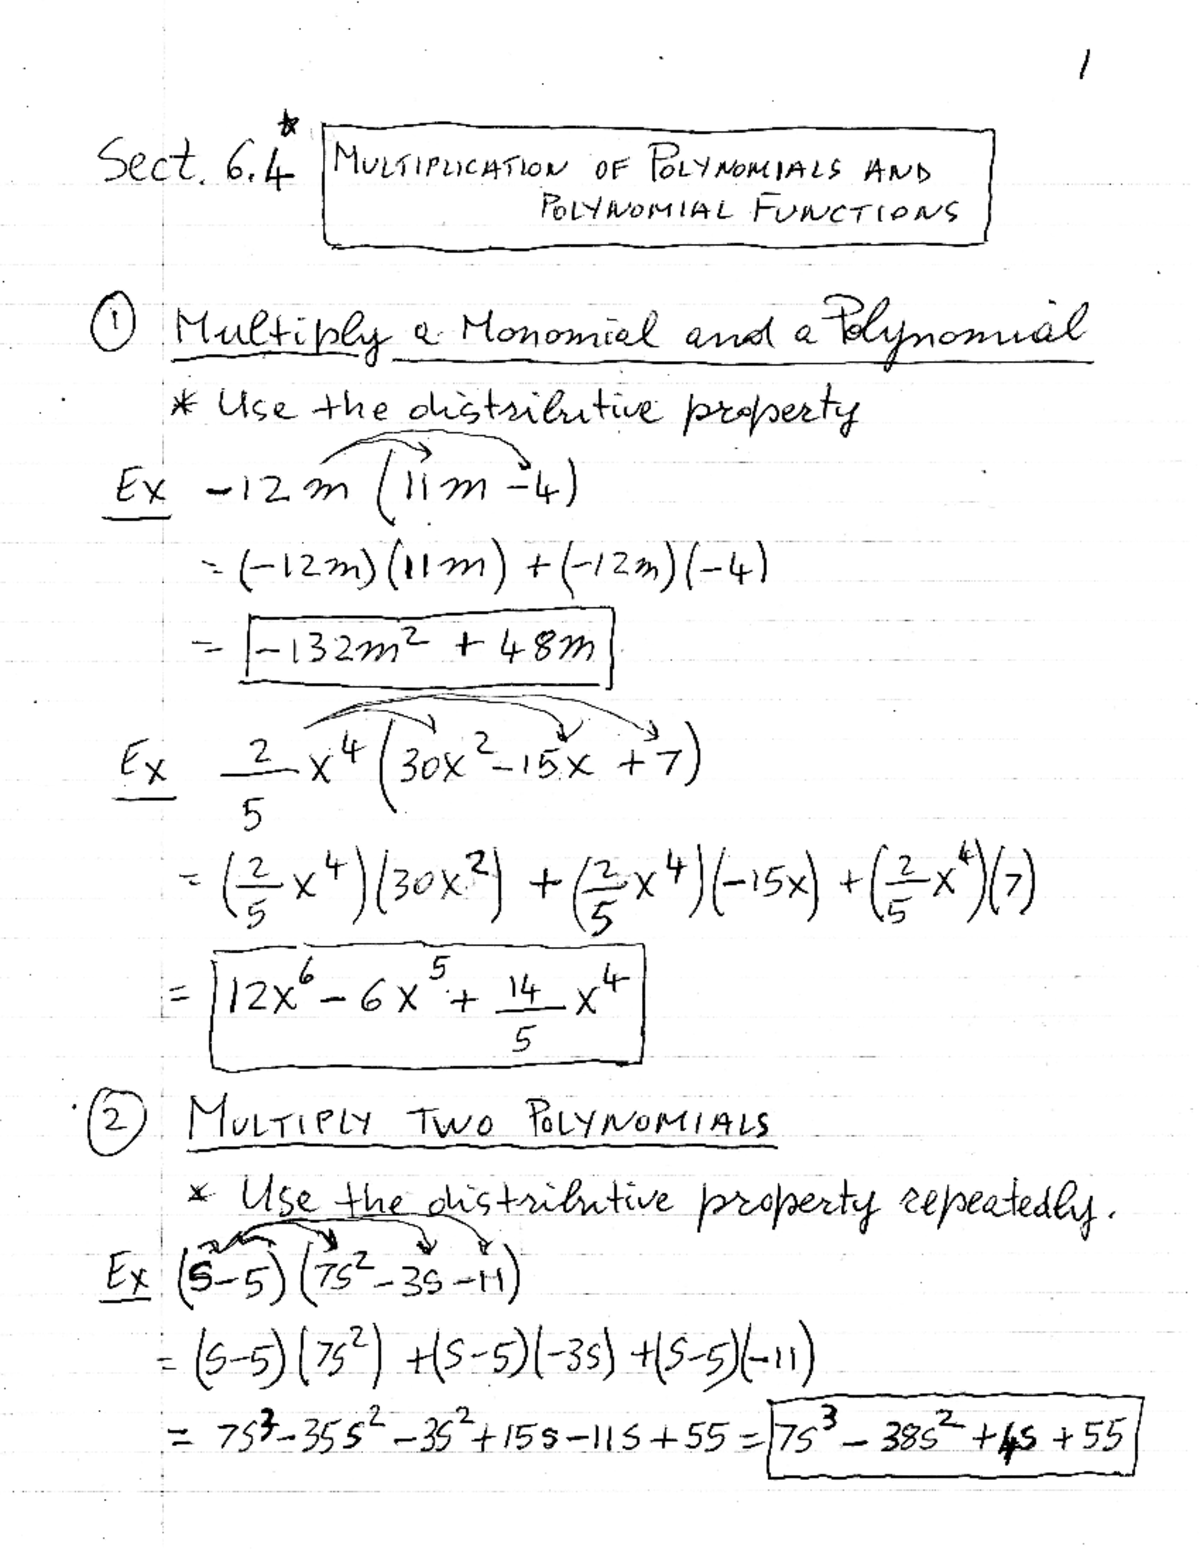 1
Sect. 6.4* MULTIPLICATION OF POLYNOMIALS AND
POLYNOMIAL FUNCTIONS
① Multiply a Monomial and a Polynomial
* Use the distributive property
Ex -12m (11m -4)
= (-12m)(11m) + (-12m)(-4)
= -132m² + 48m
Ex 2/5 x⁴ (30x² -15x +7)
= (2/5 x⁴)(30x²) + (2/5 x⁴)(-15x) + (2/5 x⁴)(7)
= 12x⁶ - 6x⁵ + 14/5 x⁴
② MULTIPLY TWO POLYNOMIALS
* Use the distributive property repeatedly.
Ex (s-5)(7s² -3s -11)
= (s-5)(7s²) +(s-5)(-3s) +(s-5)(-11)
= 7s³ -35s² -3s² +15s -11s +55 = 7s³ - 38s² +4s +55